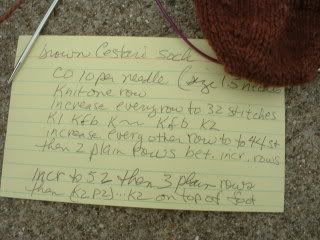 brown Cestari sock
CO 10 per needle (size 1.5 needle
Knit one row
increase every row to 32 stitches
K1 Kfb K~~ Kfb K2
increase every other row to to 44 st
then 2 plain rows bet. incr. rows
Incr to 52 then 3 plain rows
then K2 P2)...K2 on top of foot